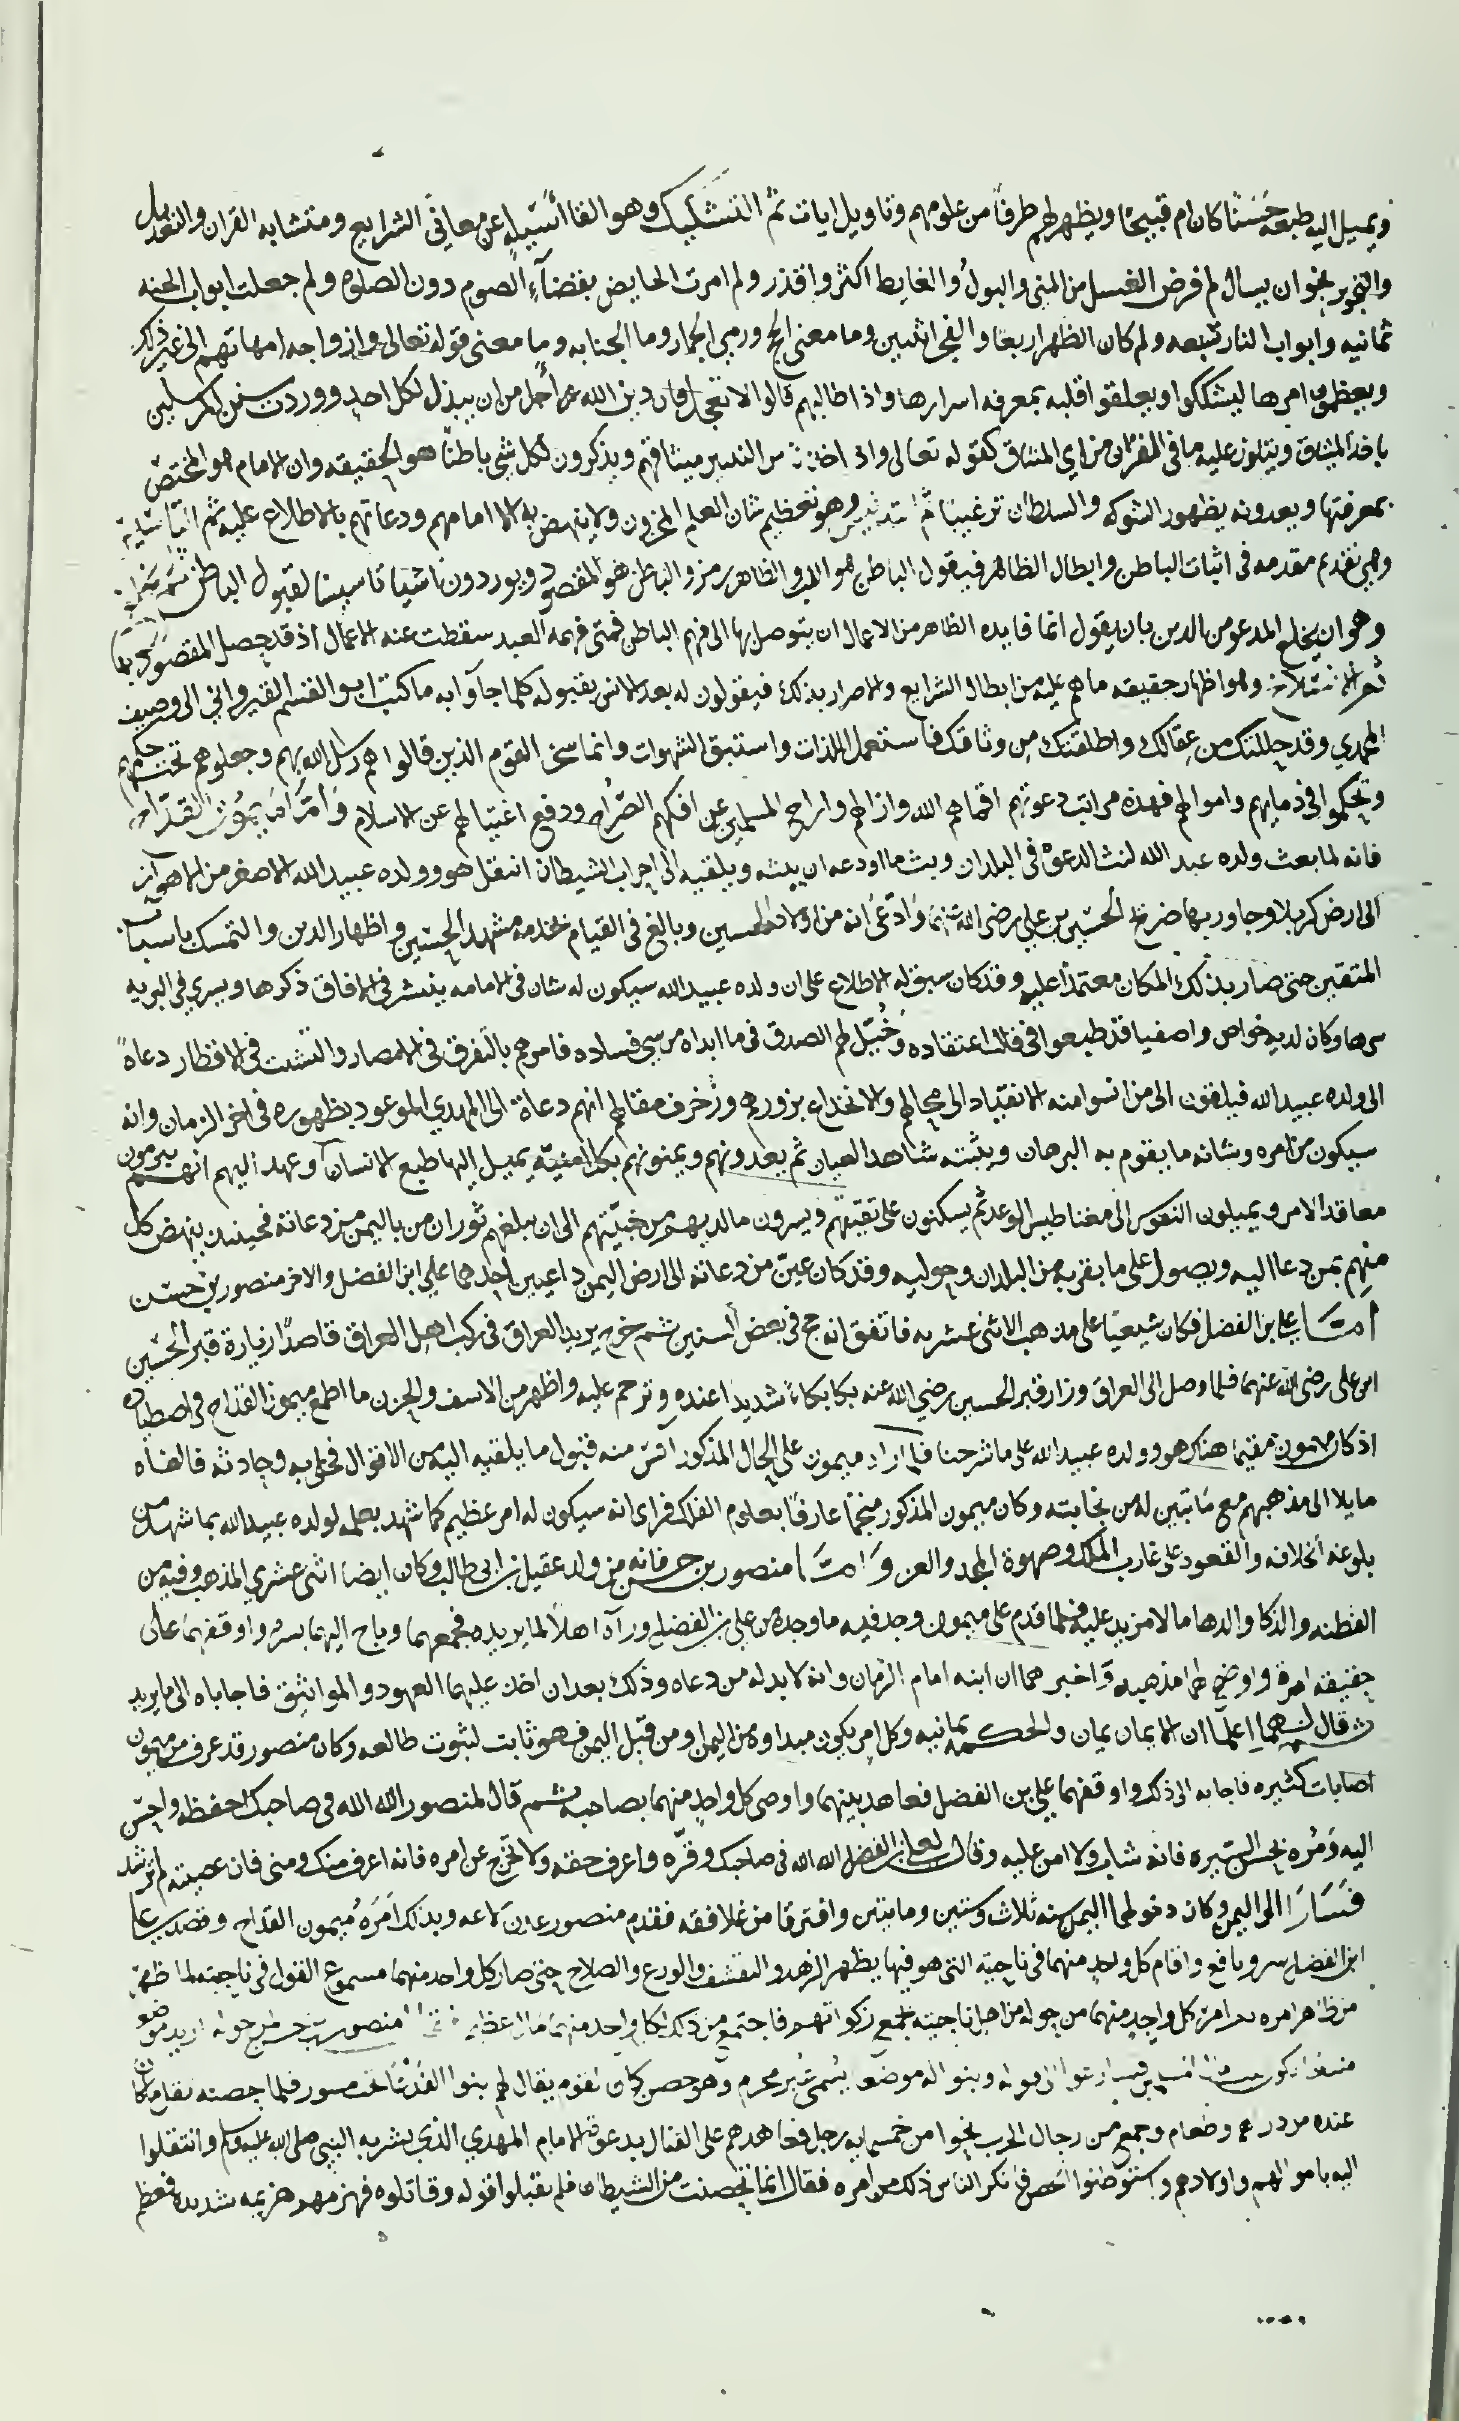 ويميل اليه طبعه حسنا كان ام قبيحا ويظهر لهم طرفا من علومهم وتاويل ايات ثم التشكيك وهو القا اسيله عن معاني الشرايع ومتشابه القران والتعديل
والتجوير نحو ان يسال لم فرض الغسل من المني والبول والغايط اكثر واقذر ولم امرت الحايض بقضاء الصوم دون الصلوه ولم جعلت ابواب الجنه
ثمانيه وابواب النار سبعه ولم كان الظهر اربعا والفجر اثنين وما معنى الحج ورمي الجمار وما الجنابه وما معنى قوله تعالى وازواجه امهاتهم الى غير ذلك
ويعظمون امرها ليشككوا ويعلقوا قلبه بمعرفه اسرارها واذا طالبهم قالوا لا تعجل فان دين الله عز اجل من ان يبذل لكل احد ووردت سنن المرسلين
باخذ الميثاق ويتلون عليه ما في القران من اي الميثاق كقوله تعالى واذ اخذنا من النبيين ميثاقهم ويذكرون لكل شي باطنا هو الحقيقه وان الامام هو المختص
بمعرفتها ويعدونه بظهور الشوكه والسلطان ترغيبا ثم التدليس وهو تعظيم شان العلم المخزون ولا ينهض به الا امامهم ودعاتهم بالاطلاع عليه ثم التاسيس
وهي تقديم مقدمه في اثبات الباطن وابطال الظاهر فيقول الباطن هو اللب والظاهر رمز والباطن هو المقصود ويوردون اشيا تاسيسا لقبول الباطن ثم
وهو ان يخلع المدعو من الدين بان يقول انما فايده الظاهر من الاعمال ان يتوصل بها الى فهم الباطن فمتى فهمه العبد سقطت عنه الاعمال اذ قد حصل المقصود بها
ثم الانسلاخ وهو اظهار حقيقه ما هم عليه من ابطال الشرايع والاصرار بذلك فيقولون له بعد الانس بقبوله كلما جاوا به ما كتب ابو القسم القيرواني الى وصيف
المهدي وقد حللتك من عقالك واطلقتك من وثاقك فاستعمل اللذات واستبق الشهوات وانما سخر القوم الذين قالوا هم رسل الله بهم وجعلوهم تحت حكمهم
وتحكموا في دمايهم واموالهم فهذه مراتب دعوتهم اقماهم الله وازالهم واراح المسلمين عن افكهم الضرام ودفع اغتيالهم عن الاسلام وامّا ميمون القدّاح
فانه لما بعث ولده عبد الله لبث الدعوه في البلدان وبث ما اودعه ان يبثه ويلقيه الى احزاب الشيطان انتقل هو وولده عبيد الله الاصغر من الاهواز
الى ارض كربلا وجاور بها ضريح الحسين بن علي رضي الله عنهما وادعى انه من اولاد الحسين وبالغ في القيام بخدمه مشهد الحسين واظهار الدين والتمسك باسباب
المتقين حتى صار بذلك المكان معتمدا عليه وقد كان سبق له الاطلاع على ان ولده عبيد الله سيكون له شان في الامامه ينتشر في الافاق ذكرها ويسري في البريه
سرها وكان لديه خواص واصفيا قد طبعوا في قالب اعتقاده وخيّل لهم الصدق في ما ابداه من سي فساده فامرهم بالتفرق في الامصار والتشتت في الاقطار دعاة
الى ولده عبيد الله فيلقون الى من انسوا منه الانقياد الى محالهم والانخداع بزورهم وزخرف مقالهم انهم دعاة الى المهدي الموعود بظهوره في اخر الزمان وانه
سيكون من امره وشانه ما يقوم به البرهان ويثبته شاهد العيان ثم يعدونهم ويمنونهم بكل امنية يميل اليها طبع الانسان وعهد اليهم انهم يبرمون
معاقد الامر ويميلون النفوس الى مغناطيس الوعد ثم يسكنون على تقيتهم ويسرون ما لديهم من خبيتهم الى ان يبلغهم ثوران من باليمن من دعاته فحينئذ ينهض كل
منهم بمن دعا اليه ويصول على ما يقربه من البلدان وحواليه وقد كان عيّن من دعاته الى ارض اليمن داعيين احدهما علي ابن الفضل والاخر منصور بن حسن
امّا علي بن الفضل فكان شيعيا على مذهب الاثني عشريه فاتفق انه حج في بعض السنين ثم خرج يريد العراق في ركب اهل العراق قاصدا زيارة قبر الحسين
ابن علي رضي الله عنهما فلما وصل الى العراق وزار قبر الحسين رضي الله عنه بكا بكاء شديدا عنده وترحم عليه واظهر من الاسف والحزن ما اطمع ميمون القداح في اصطياده
اذ كان ميمون مقيما هناك هو وولده عبيد الله على ما شرحنا فلما راه ميمون على الحال المذكور انس منه قبول ما يلقيه اليه من الاقوال فخلى به وحادثه فالفاه
مايلا الى مذهبهم مع ما تبين له من نجابته وكان ميمون المذكور منجما عارفا بعلوم الفلك فراى انه سيكون له امر عظيم كما شهد بعلمه لولده عبيد الله بما شهد من
بلوغه الخلافه والقعود على غارب الملك وصهوة المجد والعز وامّا منصور بن حسن فانه من ولد عقيل بن ابي طالب وكان ايضا اثنى عشري المذهب وفيه من
الفطنه والذكا والدها مالا مزيد عليه فلما قدم على ميمون وجد فيه ما وجده من علي بن الفضل ورآه اهلا لما يريده فجمعهما وباح اليهما بسره واوقفهما على
حقيقه امره واوضح لهما مذهبه واخبرهما ان ابنه امام الزمان وانه لا بد له من دعاه وذلك بعد ان اخذ عليهما العهود والمواثيق فاجاباه الى ما يريد
ثم قال لهما اعلما ان الايمان يمان والحكمه يمانيه وكل امر يكون مبداوه من اليمن او من قبل اليمن فهو ثابت لثبوت طالعه وكان منصور قد عرف من ميمون
اصابات كثيره فاجابه الى ذلك واوقفهما علي بن الفضل فعاهد بينهما واوصى كل واحد منهما بصاحبه ثم قال لمنصور الله الله في صاحبك احفظه واحسن
اليه ومره بحسن السيره فانه شاب ولا امن عليه وقال لعلي بن الفضل الله الله في صاحبك وقّره واعرف حقه ولا تخرج عن امره فانه اعرف منك ومني فان عصيته لم ترشد
فسارا الى اليمن وكان دخولهما اليمن سنه ثلاث وستين ومايتين وافترقا من غلافقه فقدم منصور عدن لاعه وبذلك امره ميمون القداح وقصد علي
ابن الفضل سرو يافع واقام كل واحد منهما في ناحيته التي هو فيها يظهر الزهد والتقشف والورع والصلاح حتى صار كل واحد منهما مسموع القول في ناحيته لما ظهر
من ظاهر امره ثم امر كل واحد منهما من حوله من اهل ناحيته بجمع زكواتهم فاجتمع من ذلك لكل واحد منهما مال عظيم منصور بن حسن لمن حوله اريد موضعا
وبنوا له موضعا يسمى عبر محرم وهو حصن كان لقوم يقال لهم بنوا العُرجا تحت مسور فلما حصنه نقل ما كان
عنده من دراهم وطعام وجمع من رجال الحرب نحوا من خمسمايه رجل فعاهدهم على القتال بدعوة الامام المهدي الذي بشر به النبي صلى الله عليه وسلم وانتقلوا
اليه باموالهم واولادهم واستوطنوا الحصن فانكر الناس ذلك من امره فقال انما تحصنت من الشيطان فلم يقبلوا قوله وقاتلوه فهزمهم هزيمه شديده فعظم